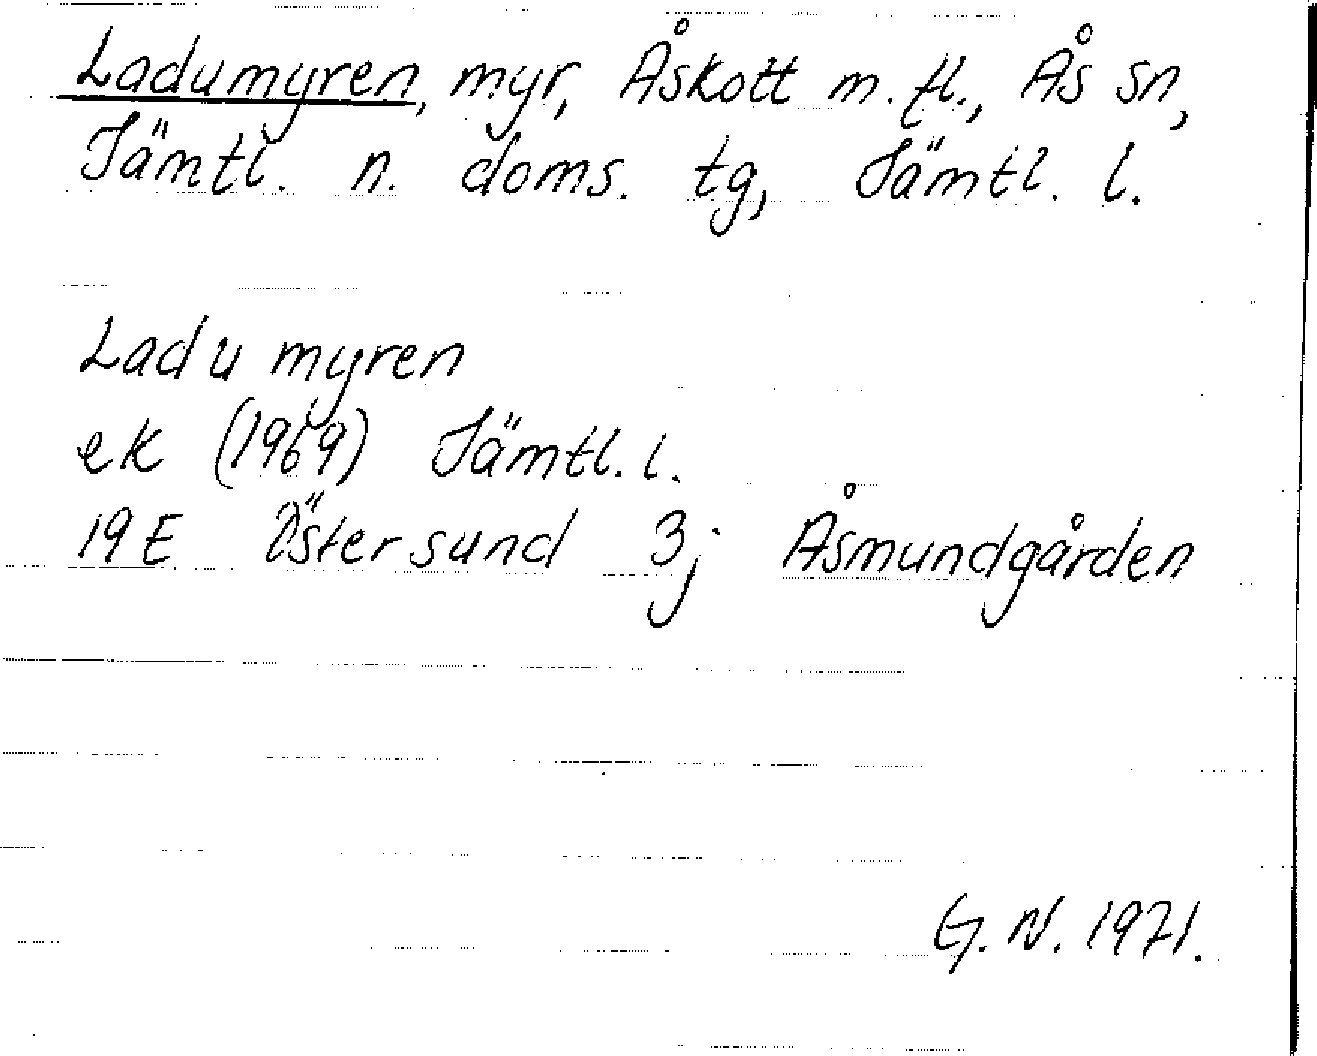 Ladumyren, myr, Åskott m.fl., Ås sn,
Jämtl. n. doms. tg, Jämtl. l.
Ladumyren
ek (1969) Jämtl. l.
19E Östersund 3j Åsmundgården
G. N. 1971.